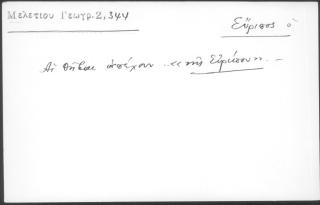 Μελετίου Γεωγρ. 2, 344
Εὔριπος ὁ
Αἱ Θῆβαι ἀπέχουν .. «τῆς Εὐρίπου». —